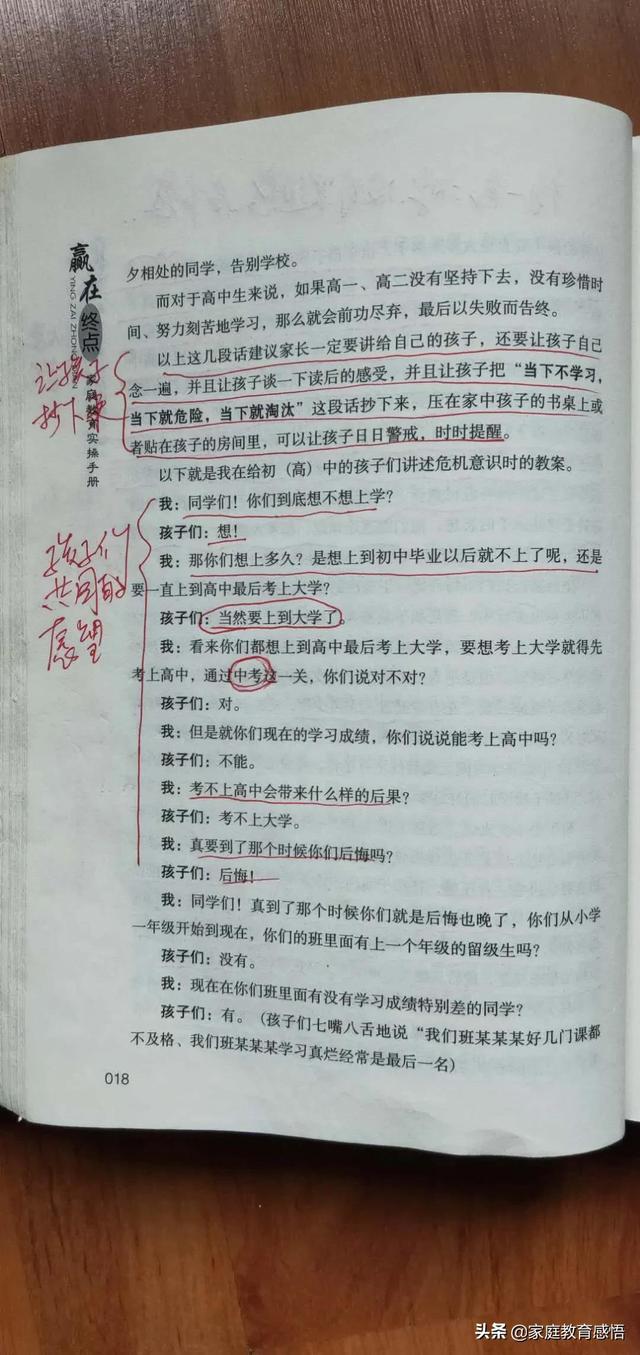 夕相处的同学，告别学校。
而对于高中生来说，如果高一、高二没有坚持下去，没有珍惜时
间、努力刻苦地学习，那么就会前功尽弃，最后以失败而告终。
以上这几段话建议家长一定要讲给自己的孩子，还要让孩子自己
念一遍，并且让孩子谈一下读后的感受，并且让孩子把“当下不学习，
当下就危险，当下就淘汰”这段话抄下来，压在家中孩子的书桌上或
者贴在孩子的房间里，可以让孩子日日警戒，时时提醒。
以下就是我在给初（高）中的孩子们讲述危机意识时的教案。
我：同学们！你们到底想不想上学？
孩子们：想！
我：那你们想上多久？是想上到初中毕业以后就不上了呢，还是
要一直上到高中最后考上大学？
孩子们：当然要上到大学了。
我：看来你们都想上到高中最后考上大学，要想考上大学就得先
考上高中，通过中考这一关，你们说对不对？
孩子们：对。
我：但是就你们现在的学习成绩，你们说说能考上高中吗？
孩子们：不能。
我：考不上高中会带来什么样的后果？
孩子们：考不上大学。
我：真要到了那个时候你们后悔吗？
孩子们：后悔！
我：同学们！真到了那个时候你们就是后悔也晚了，你们从小学
一年级开始到现在，你们的班里面有上一个年级的留级生吗？
孩子们：没有。
我：现在在你们班里面有没有学习成绩特别差的同学？
孩子们：有。（孩子们七嘴八舌地说“我们班某某某好几门课都
不及格、我们班某某某学习真烂经常是最后一名）
018
赢在终点
YING ZAI ZHONG
家庭教育实操手册
让孩子
抄下来
孩子们
共同的
愿望
头条 @家庭教育感悟